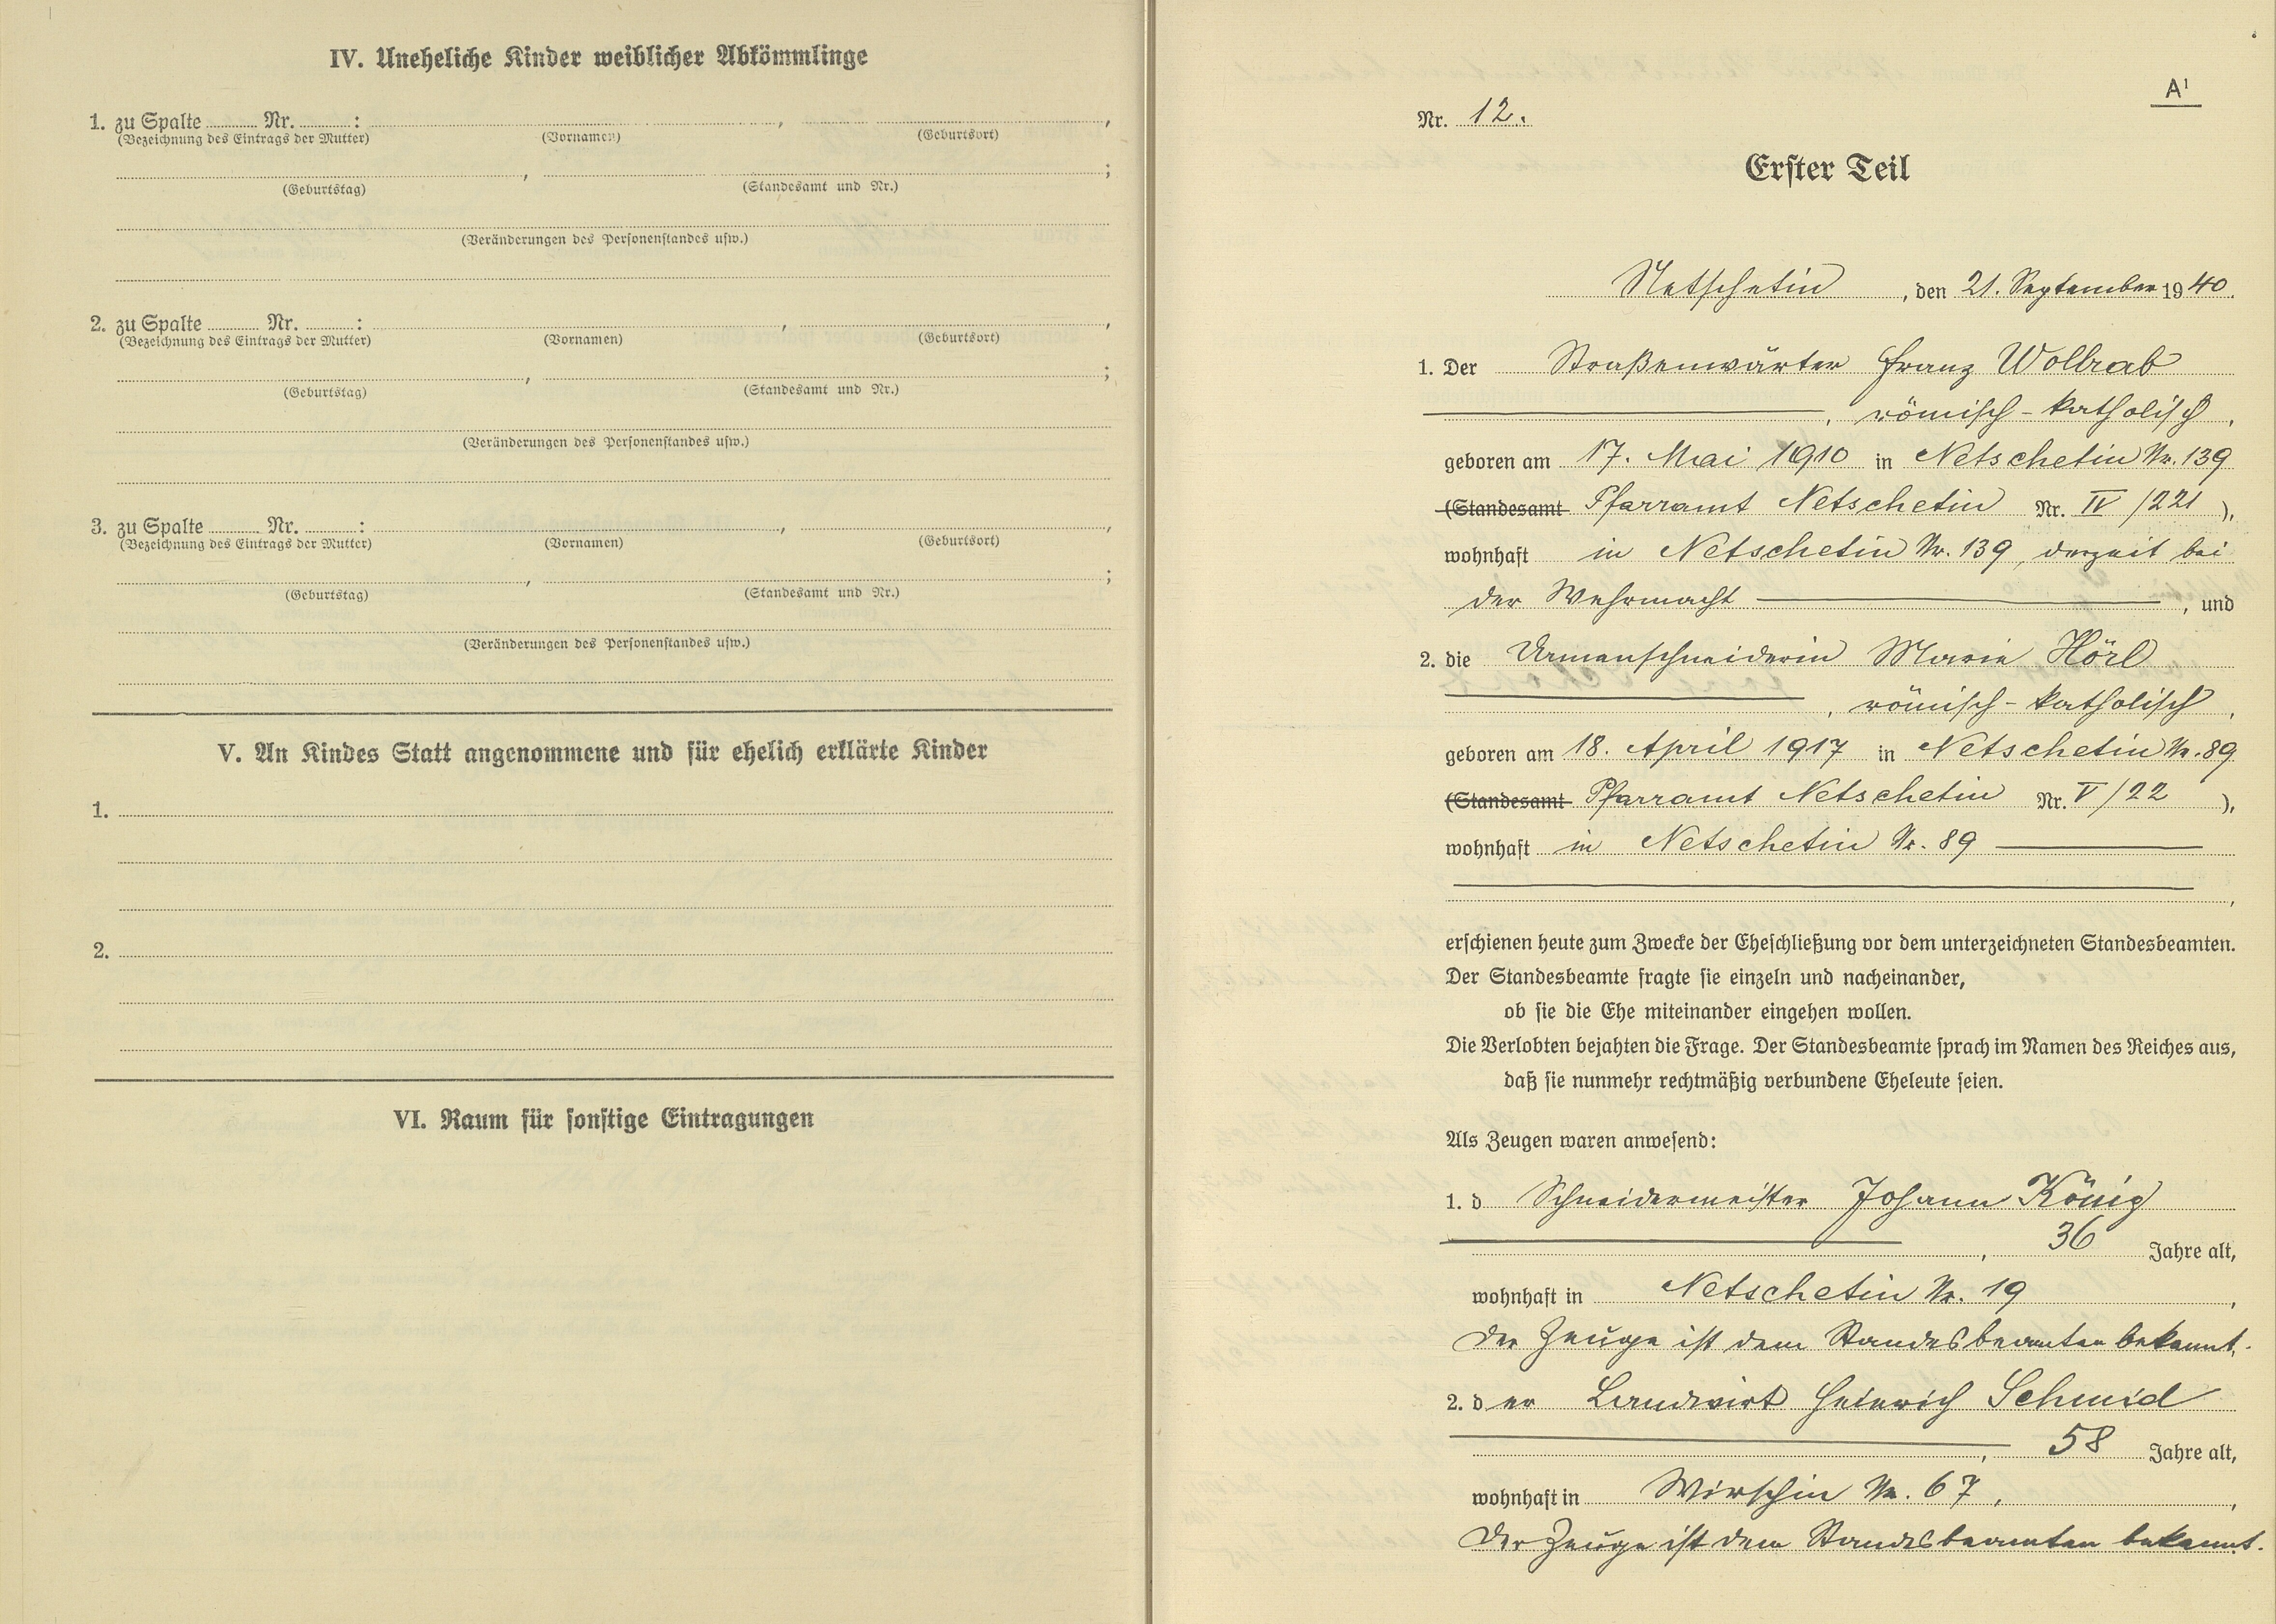 IV. Uneheliche Kinder weiblicher Abkömmlinge
1. zu Spalte Nr. : , ,
(Bezeichnung des Eintrags der Mutter) (Vornamen) (Geburtsort)
, ;
(Geburtstag) (Standesamt und Nr.)
(Veränderungen des Personenstandes usw.)
2. zu Spalte Nr. : , ,
(Bezeichnung des Eintrags der Mutter) (Vornamen) (Geburtsort)
, ;
(Geburtstag) (Standesamt und Nr.)
(Veränderungen des Personenstandes usw.)
3. zu Spalte Nr. : , ,
(Bezeichnung des Eintrags der Mutter) (Vornamen) (Geburtsort)
, ;
(Geburtstag) (Standesamt und Nr.)
(Veränderungen des Personenstandes usw.)
V. An Kindes Statt angenommene und für ehelich erklärte Kinder
1.
2.
VI. Raum für sonstige Eintragungen
A¹
Nr. 12.
Erster Teil
Netschetin, den 21. September 1940.
1. Der Straßenwärter Franz Wollrab
, römisch-katholisch,
geboren am 17. Mai 1910 in Netschetin Nr. 139
(Standesamt Pfarramt Netschetin Nr. IV/221 ),
wohnhaft in Netschetin Nr. 139, derzeit bei
der Wehrmacht , und
2. die Damenschneiderin Marie Hörl
, römisch-katholisch,
geboren am 18. April 1917 in Netschetin Nr. 89
(Standesamt Pfarramt Netschetin Nr. V/22 ),
wohnhaft in Netschetin Nr. 89
,
erschienen heute zum Zwecke der Eheschließung vor dem unterzeichneten Standesbeamten.
Der Standesbeamte fragte sie einzeln und nacheinander,
ob sie die Ehe miteinander eingehen wollen.
Die Verlobten bejahten die Frage. Der Standesbeamte sprach im Namen des Reiches aus,
daß sie nunmehr rechtmäßig verbundene Eheleute seien.
Als Zeugen waren anwesend:
1. d Schneidermeister Johann König
, 36 Jahre alt,
wohnhaft in Netschetin Nr. 19 ,
Der Zeuge ist dem Standesbeamten bekannt.
2. der Landwirt Heinrich Schmid
, 58 Jahre alt,
wohnhaft in Wirschin Nr. 67, ,
Der Zeuge ist dem Standesbeamten bekannt.